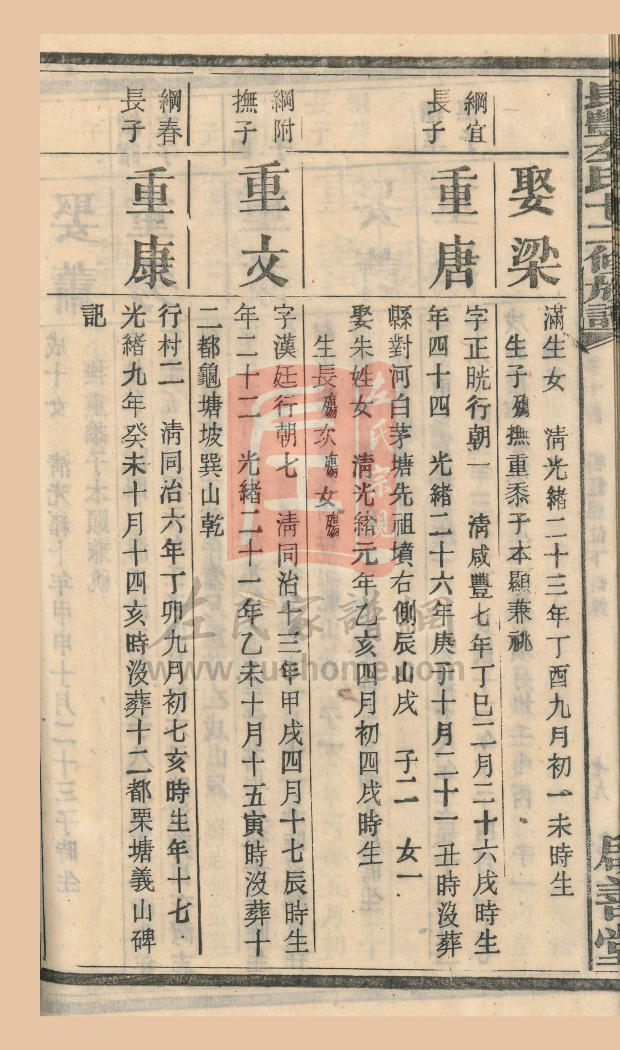 長豐左氏十二修族譜
啟善堂
娶梁
滿生女　清光緒二十三年丁酉九月初一未時生
生子殤撫重黍子本顯兼祧
綱宜
長子
重唐
字正胱行朝一　清咸豐七年丁巳二月二十六戌時生
年四十四　光緒二十六年庚子十月二十一丑時沒葬
縣對河白茅塘先祖墳右側辰山戌　子二　女一
娶朱姓女　清光緒元年乙亥四月初四戌時生
生長殤次殤女殤
綱附
撫子
重文
字漢廷行朝七　清同治十三年甲戌四月十七辰時生
年二十二　光緒二十一年乙未十月十五寅時沒葬十
二都龜塘坡巽山乾
綱春
長子
重康
行村二　清同治六年丁卯九月初七亥時生年十七
光緒九年癸未十月十四亥時沒葬十二都栗塘義山碑
記
左氏宗親
左氏家譜網